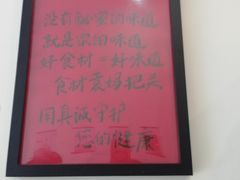 没有秘密的味道
就是家的味道
好食材=好味道
食材爱妈把关
用真诚守护
您的健康